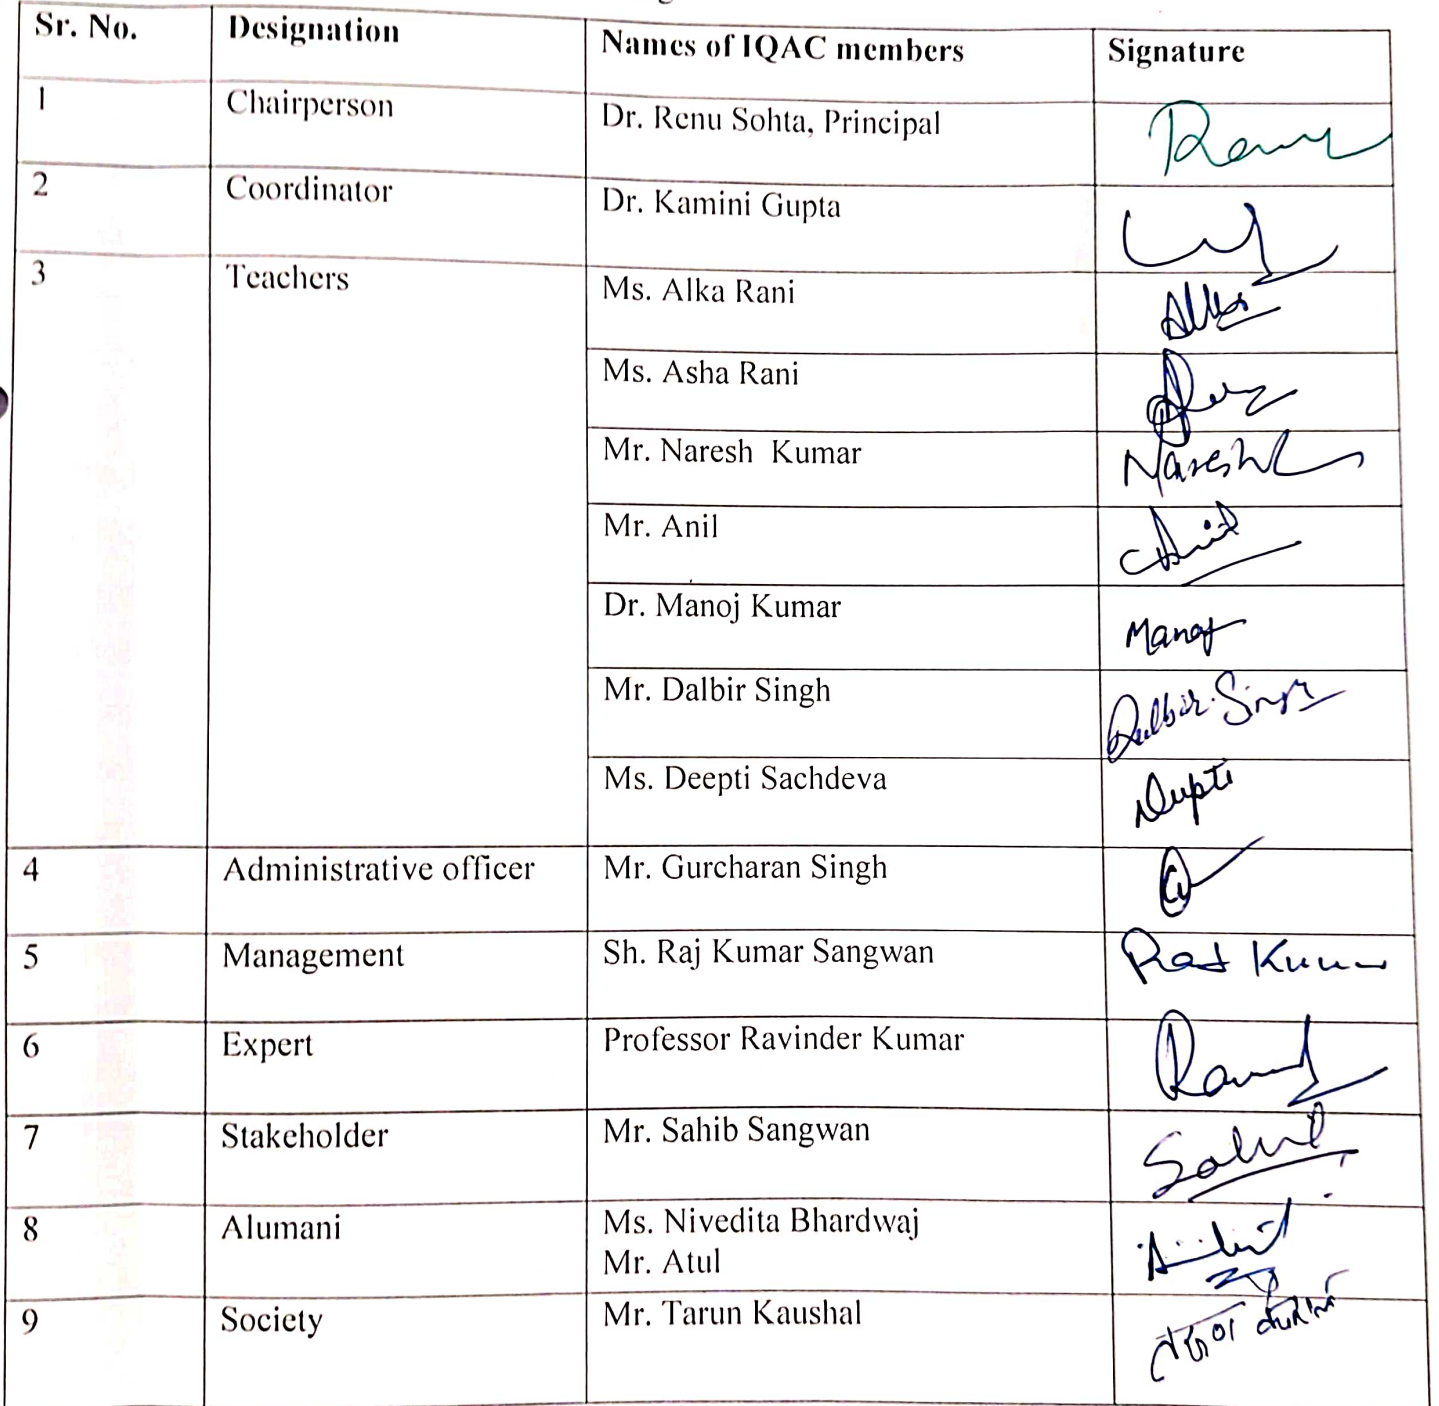 Sr. No. Designation Names of IQAC members Signature
1 Chairperson Dr. Renu Sohta, Principal
2 Coordinator Dr. Kamini Gupta
3 Teachers Ms. Alka Rani Alka
Ms. Asha Rani
Mr. Naresh Kumar Naresh
Mr. Anil Anil
Dr. Manoj Kumar Manoj
Mr. Dalbir Singh Dalbir Singh
Ms. Deepti Sachdeva Deepti
4 Administrative officer Mr. Gurcharan Singh
5 Management Sh. Raj Kumar Sangwan Raj Kumar
6 Expert Professor Ravinder Kumar
7 Stakeholder Mr. Sahib Sangwan Sahib
8 Alumani Ms. Nivedita Bhardwaj
Mr. Atul
9 Society Mr. Tarun Kaushal तरूण कौशल